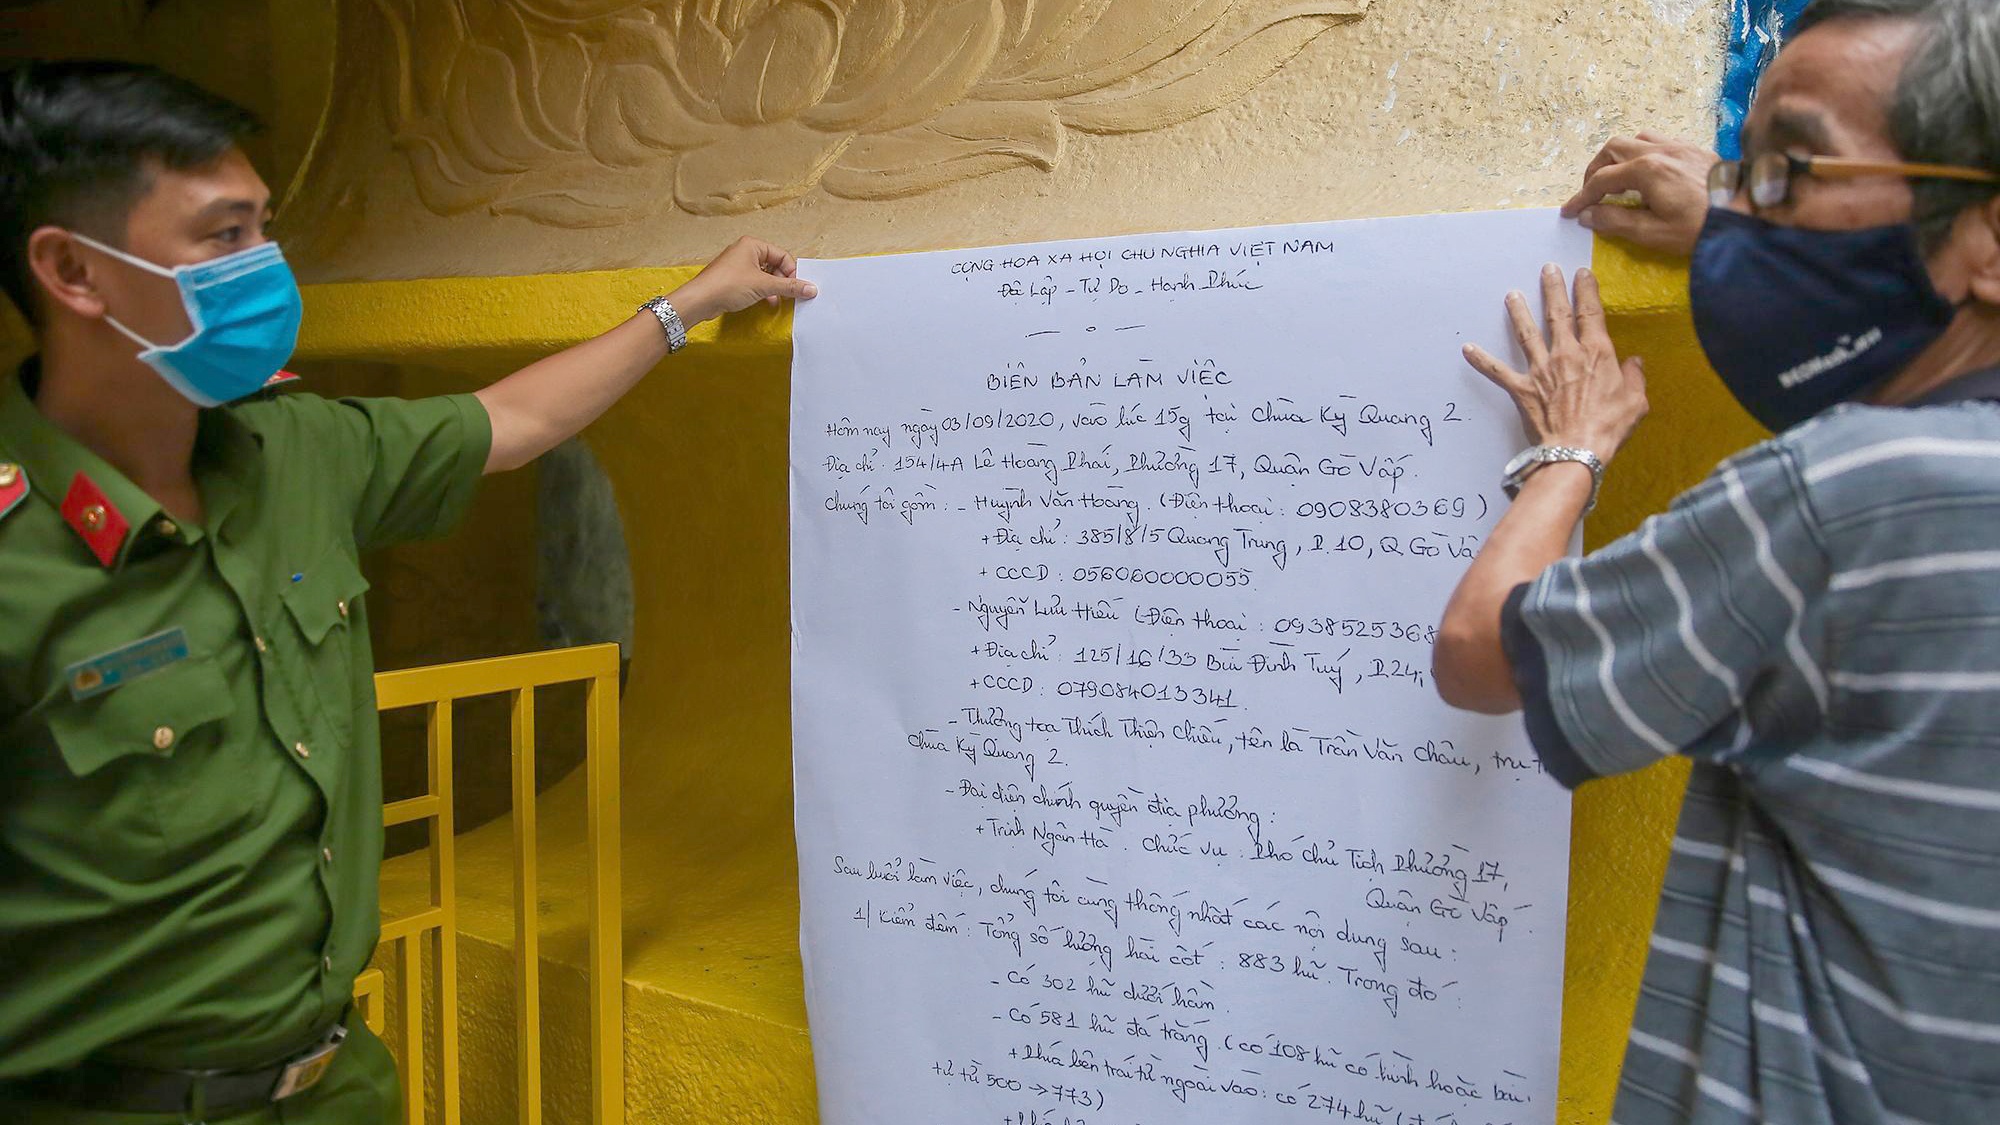 CỘNG HOA XA HỘI CHU NGHIA VIỆT NAM
Độ Lập - Tự Do - Hạnh Phúc
BIÊN BẢN LÀM VIỆC
Hôm nay ngày 03/09/2020, vào lúc 15g tại Chùa Kỳ Quang 2.
Địa chỉ: 154/4A Lê Hoàng Phái, Phường 17, Quận Gò Vấp.
Chúng tôi gồm: - Huỳnh Văn Hoàng. (Điện thoại: 0908380369)
+ Địa chỉ: 385/8/5 Quang Trung, P.10, Q Gò Vấ
+ CCCD: 056060000055
- Nguyễn Lưu Hiếu (Điện thoại: 0938525368
+ Địa chỉ: 125/16/33 Bùi Đình Tuý, P.24,
+ CCCD: 079084013341.
- Thượng toạ Thích Thiện Chiếu, tên là Trần Văn Châu, trụ t
chùa Kỳ Quang 2.
- Đại diện chính quyền địa phương:
+ Trịnh Ngân Hà. Chức vụ: Phó Chủ Tịch Phường 17,
Quận Gò Vấp.
Sau buổi làm việc, chúng tôi cùng thống nhất các nội dung sau:
1/ Kiểm đếm: Tổng số lượng hài cốt: 883 hũ. Trong đó:
- Có 302 hũ dưới hầm.
- Có 581 hũ đá trắng. (có 108 hũ có hình hoặc
+ Phía bên trái từ ngoài vào: có 274 hũ
từ 500 → 773)